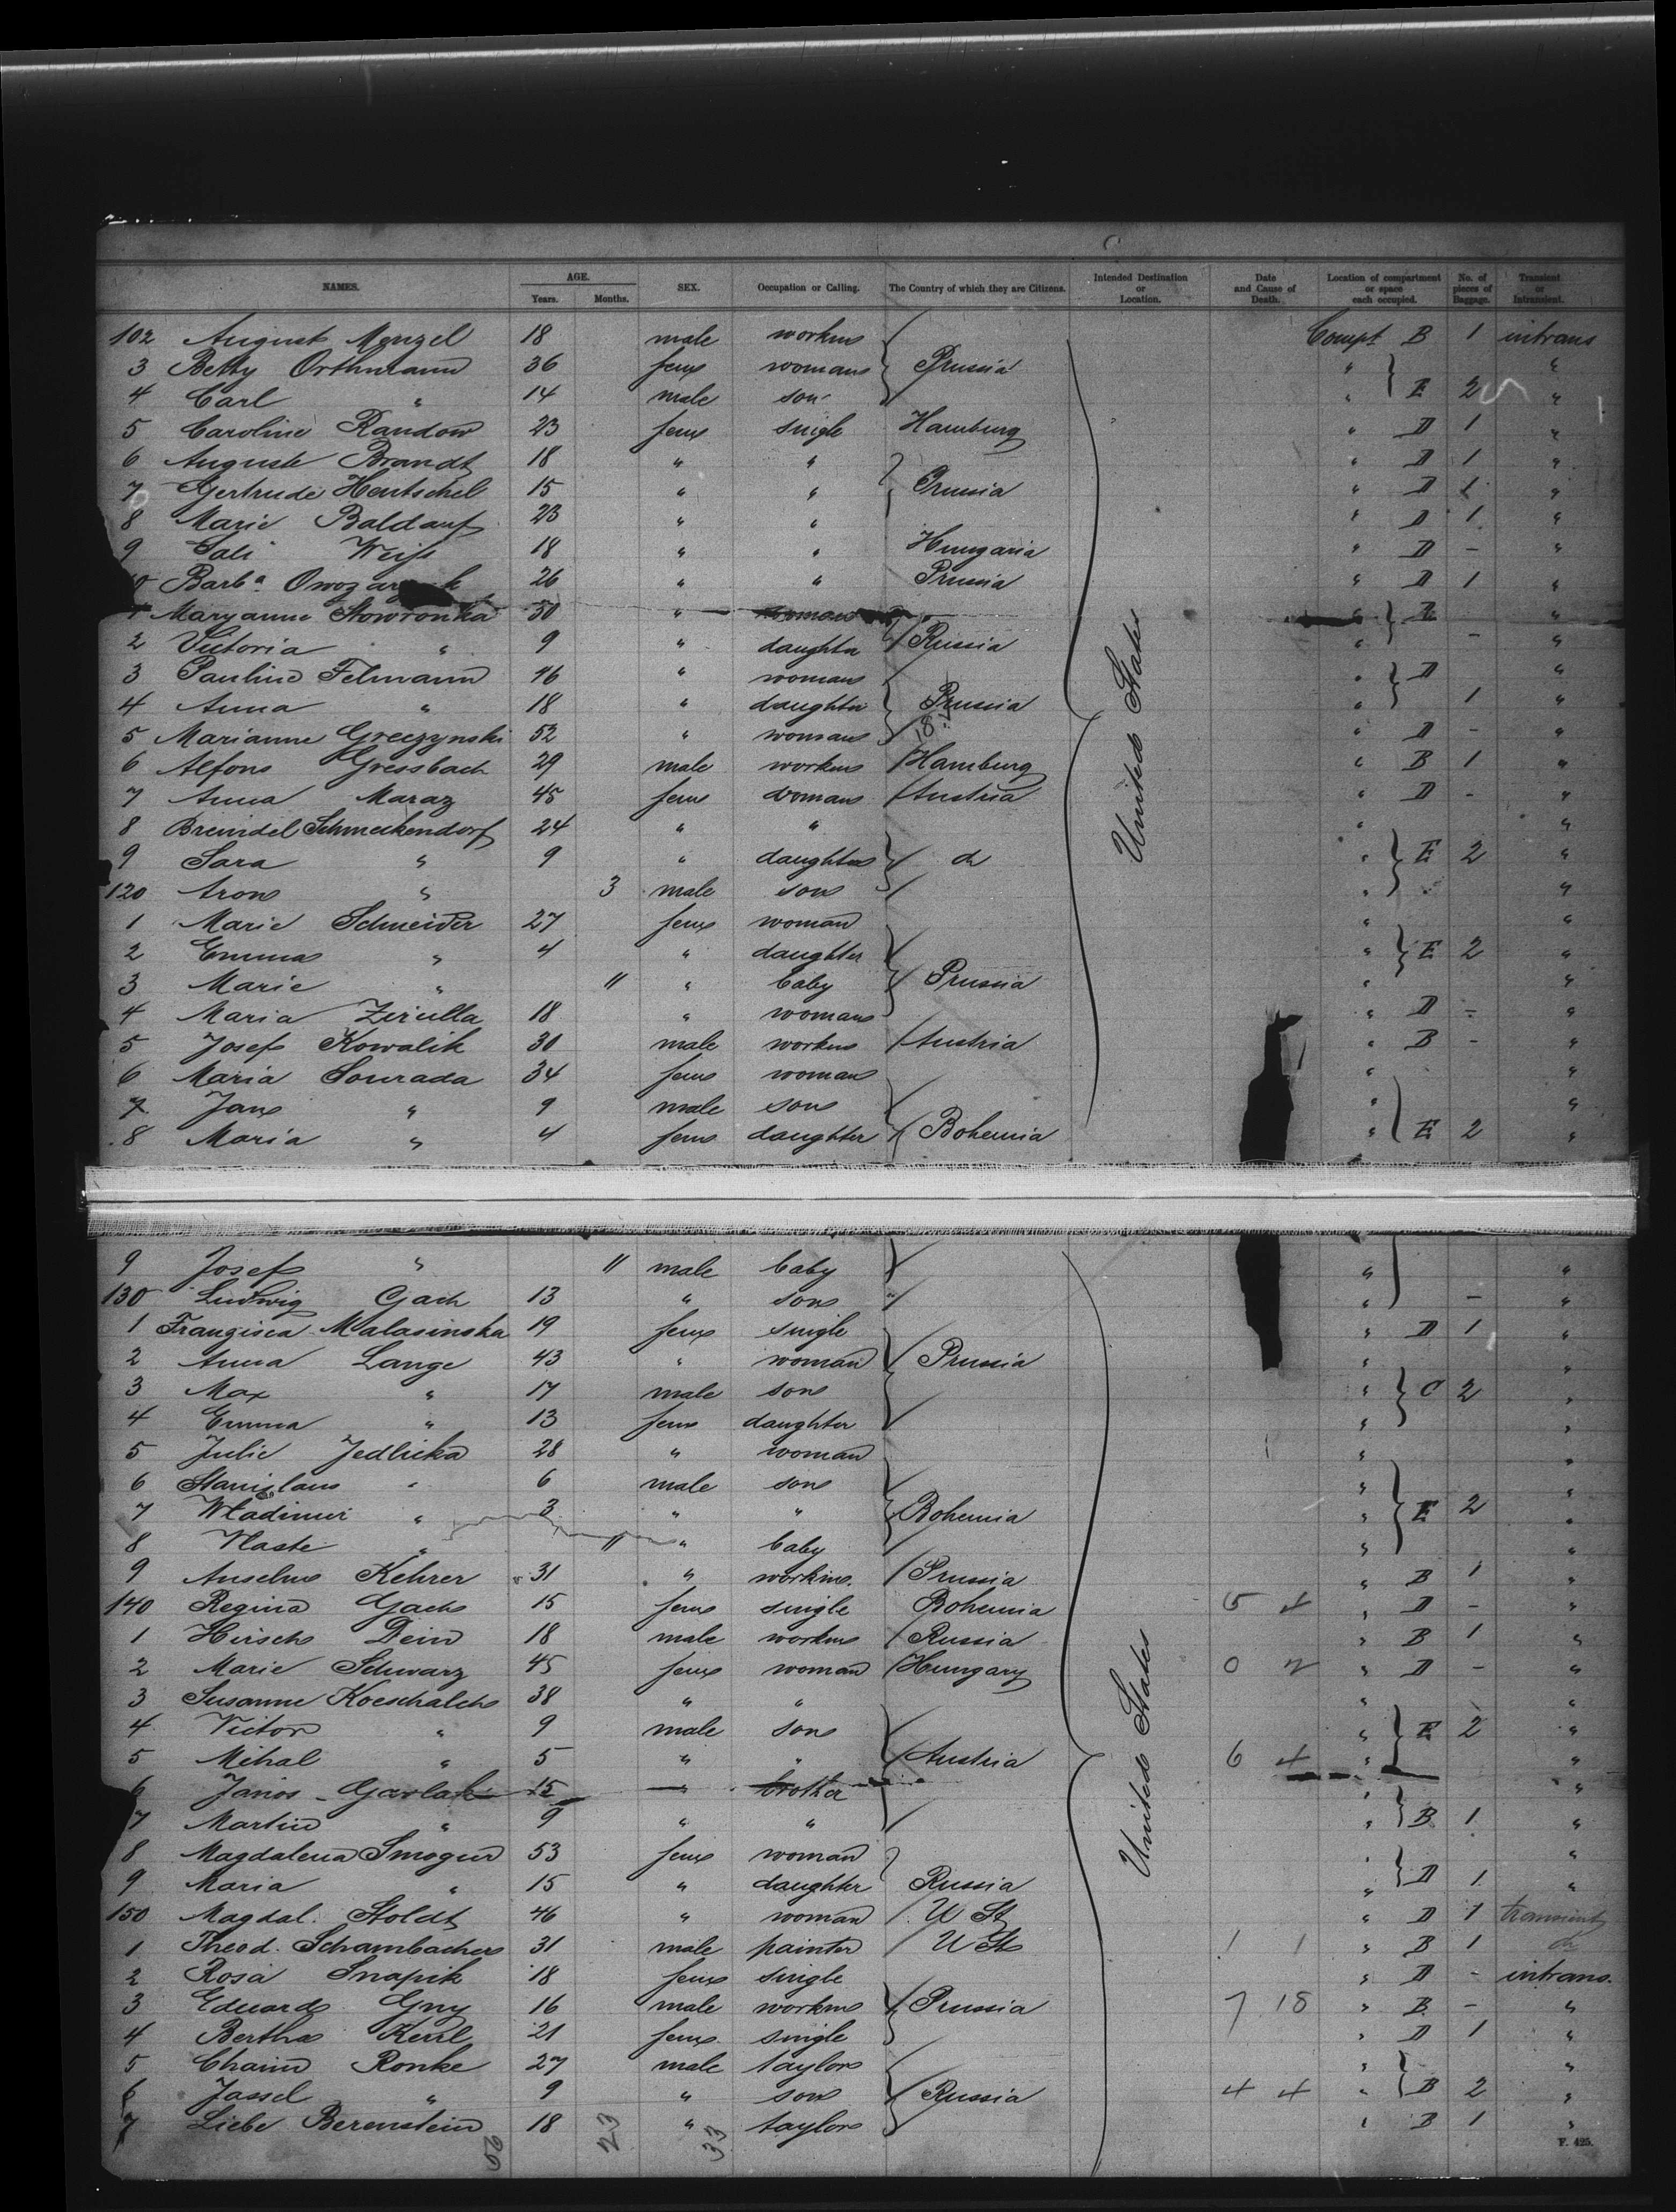 NAMES. AGE. Years. Months. SEX. Occupation or Calling. The Country of which they are Citizens. Intended Destination or Location. Date and Cause of Death. Location of compartment or space each occupied. No. of pieces of Baggage. Transient or Intransient.
102 August Menzel 18 male workm Compt B 1 intrans
3 Betty Orthmann 36 fem woman Prussia " "
4 Carl " 14 male son " E 2 "
5 Caroline Randow 23 fem single Hamburg " D 1 "
6 Auguste Brandt 18 " " " D 1 "
7 Gertrude Hentschel 15 " " Prussia " D 1 "
8 Marie Baldauf 23 " " " D 1 "
9 Sali Weiss 18 " " Hungaria " D - "
Barb.a 26 " " Prussia " D 1 "
Maryanne Skowronka 50 " woman " D "
2 Victoria " 9 " daughter Russia " - "
3 Pauline Felmann 46 " woman " D "
4 Anna " 18 " daughter Prussia " 1 "
5 Marianne Greczynski 52 " woman " D - "
6 Alfons Gressbach 29 male workm Hamburg " B 1 "
7 Anna Maraz 45 fem woman Austria " D - "
8 Breindel Schmeckendorf 24 " " " "
9 Sara " 9 " daughter do " E 2 "
120 Aron " 3 male son " "
1 Marie Schneider 27 fem woman " "
2 Emma " 4 " daughter " E 2 "
3 Marie " 11 " baby Prussia " "
4 Maria Zirulla 18 " woman " D - "
5 Josef Kowalik 30 male workm Austria " B - "
6 Maria Sourada 34 fem woman " "
7 Jan " 9 male son " "
8 Maria " 4 fem daughter Bohemia " E 2 "
United States
9 Josef " 11 male baby " "
130 Ludwig Gach 13 " son " " - "
1 Franzisca Malasinska 19 fem single " D 1 "
2 Anna Lange 43 " woman Prussia " "
3 Max " 17 male son " C 2 "
4 Emma " 13 fem daughter " "
5 Julie Jedlicka 28 " woman " "
6 Stanislaus " 6 male son " "
7 Wladimir " 3 " " Bohemia " E 2 "
8 Vlaste " 11 " baby " "
9 Anselm Kehrer 31 " workm. Prussia " B 1 "
140 Regina Gach 15 fem single Bohemia 5 4 " D - "
1 Hirsch Dein 18 male workm Russia " B 1 "
2 Marie Schwarz 45 fem woman Hungary 0 2 " D - "
3 Susanne Koeschalch 38 " " " "
4 Victor " 9 male son " E 2 "
5 Mihal " 5 " " Austria 6 4 " "
6 Janos Gavlak 15 " brother " "
7 Martin " 9 " " " B 1 "
8 Magdalena Smogur 53 fem woman " "
9 Maria " 15 " daughter Russia " D 1 "
150 Magdal. Stoldt 46 " woman U St " D 1 transient
1 Theod. Schambacher 31 male painter U St 1 1 " B 1 do
2 Rosa Snapik 18 fem single " D - intrans.
3 Eduard Gny 16 male workm Prussia 7 18 " B - "
4 Bertha Kerrl 21 fem single " D 1 "
5 Chaim Ronke 27 male taylor " "
6 Jassel " 9 " son Russia 4 4 " B 2 "
7 Liebe Berenstein 18 " taylor " B 1 "
United States
56 23 33
F. 425.